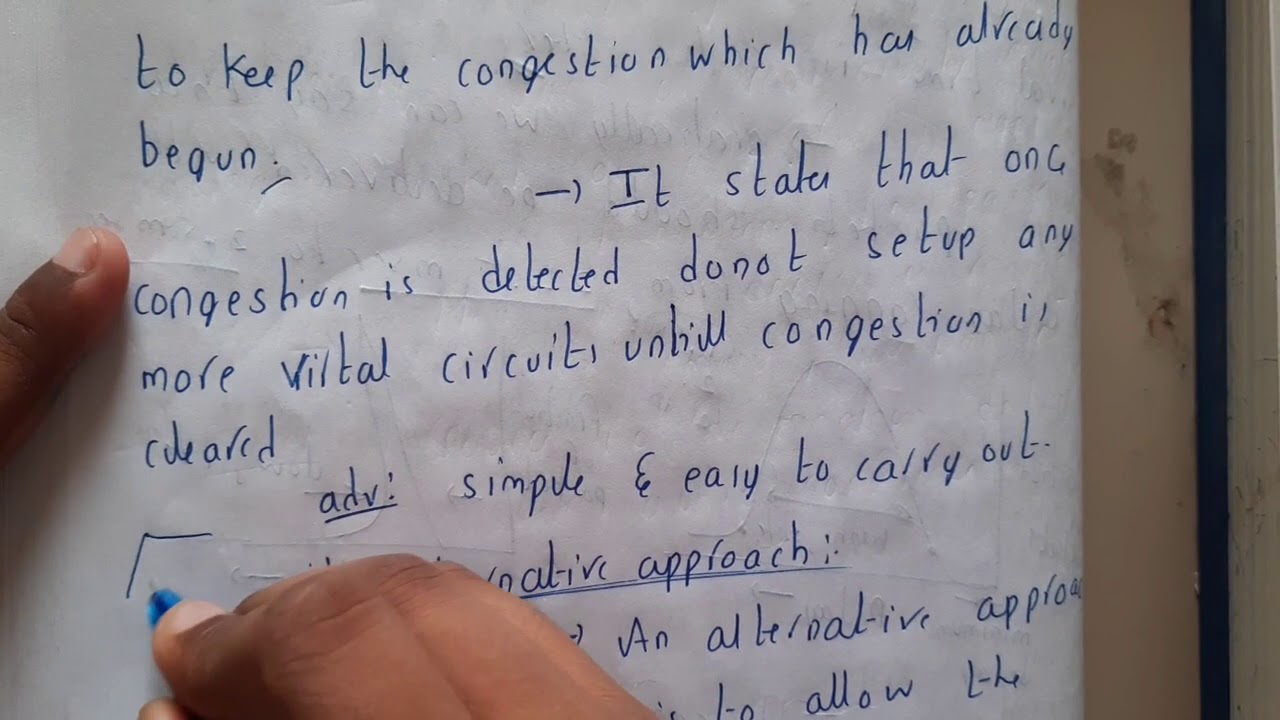 to keep the congestion which has already
begun.
→ It states that once
congestion is detected donot setup any
more virtal circuits untill congestion is
cleared
adv: simple & easy to carry out.
native approach:
→ An alternative approa
is to allow the